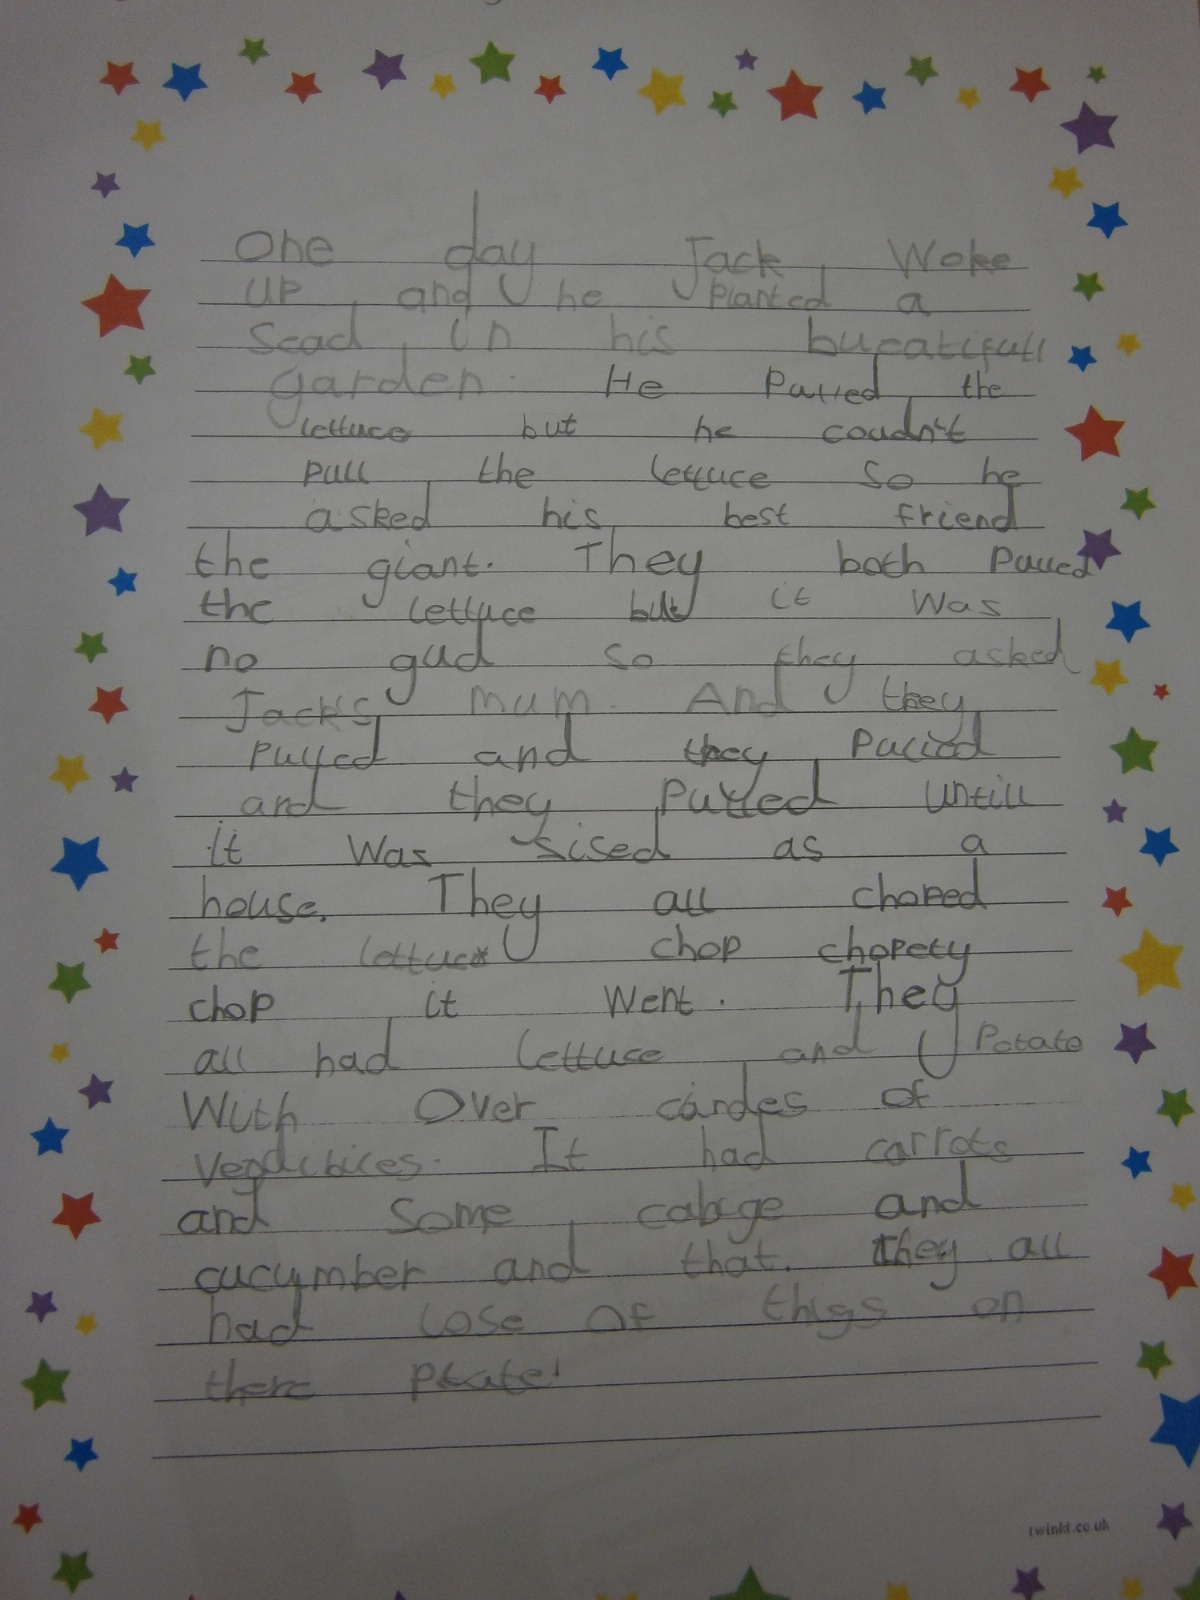 One day Jack Woke
up and he planted a
Scad in his bucatifull
garden. He Pulled the
lettuce but he coudn't
pull the lettuce so he
asked his best friend
the giant. They both Pulled
the lettuce but it was
no gud so they asked
Jack's mum. And they
pulled and they Pulled
and they Pulled untill
it was sised as a
house. They all choped
the lettuce chop chopety
chop it Went. They
all had lettuce and Potato
With Over of
It had carrots
and Some cabige and
cucumber and that. they all
had lose of thigs on
there plate!
twinkl.co.uk